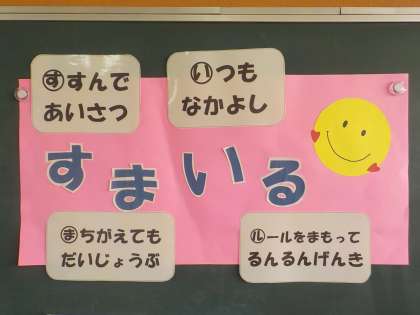 すすんで
あいさつ
いつも
なかよし
すまいる
まちがえても
だいじょうぶ
ルールをまもって
るんるんげんき